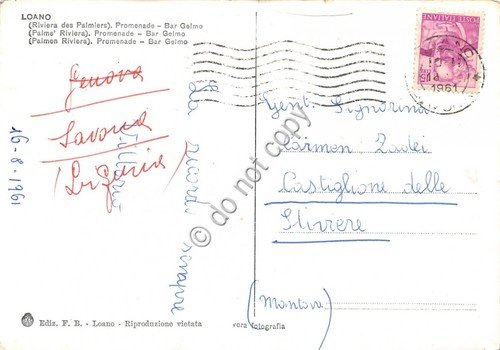 LOANO
(Riviera des Palmiers). Promenade – Bar Gelmo
(Palms' Riviera). Promenade – Bar Gelmo
(Palmen Riviera). Promenade – Bar Gelmo
Genova
Savona
(Liguria)
16-8-1961
ricordi
sempre
POSTE ITALIANE
1961
Gent. Signorina
Carmen Zadei
Castiglione delle
Stiviere
(Mantova)
© do not copy
Ediz. F. B. - Loano - Riproduzione vietata
vera fotografia